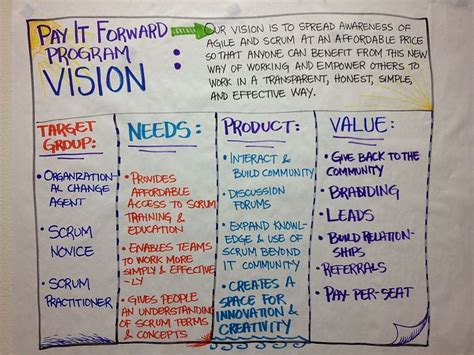 Pay It Forward
Program
Vision
:
Our vision is to spread awareness of
Agile and Scrum at an affordable price
so that anyone can benefit from this new
way of working and empower others to
work in a transparent, honest, simple,
and effective way.
Target
Group:
• Organization-
al Change
Agent
• Scrum
Novice
• Scrum
Practitioner
Needs:
• Provides
Affordable
Access to Scrum
Training &
Education
• Enables Teams
to work more
simply & effective
-ly
• Gives people
an understanding
of Scrum terms &
concepts
Product:
• Interact &
Build Community
• Discussion
Forums
• Expand Knowl-
edge & Use of
Scrum beyond
IT community
• Creates a
space for
innovation &
creativity
Value:
• Give back to the
community
• Branding
• Leads
• Build Relation-
ships
• Referrals
• Pay-per-seat